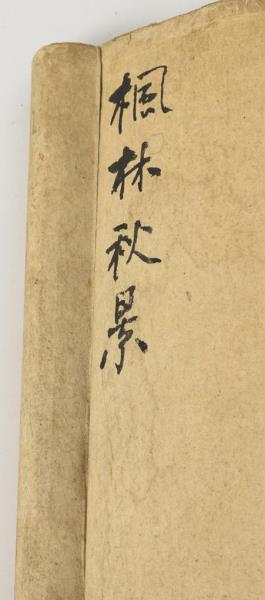 楓林秋景